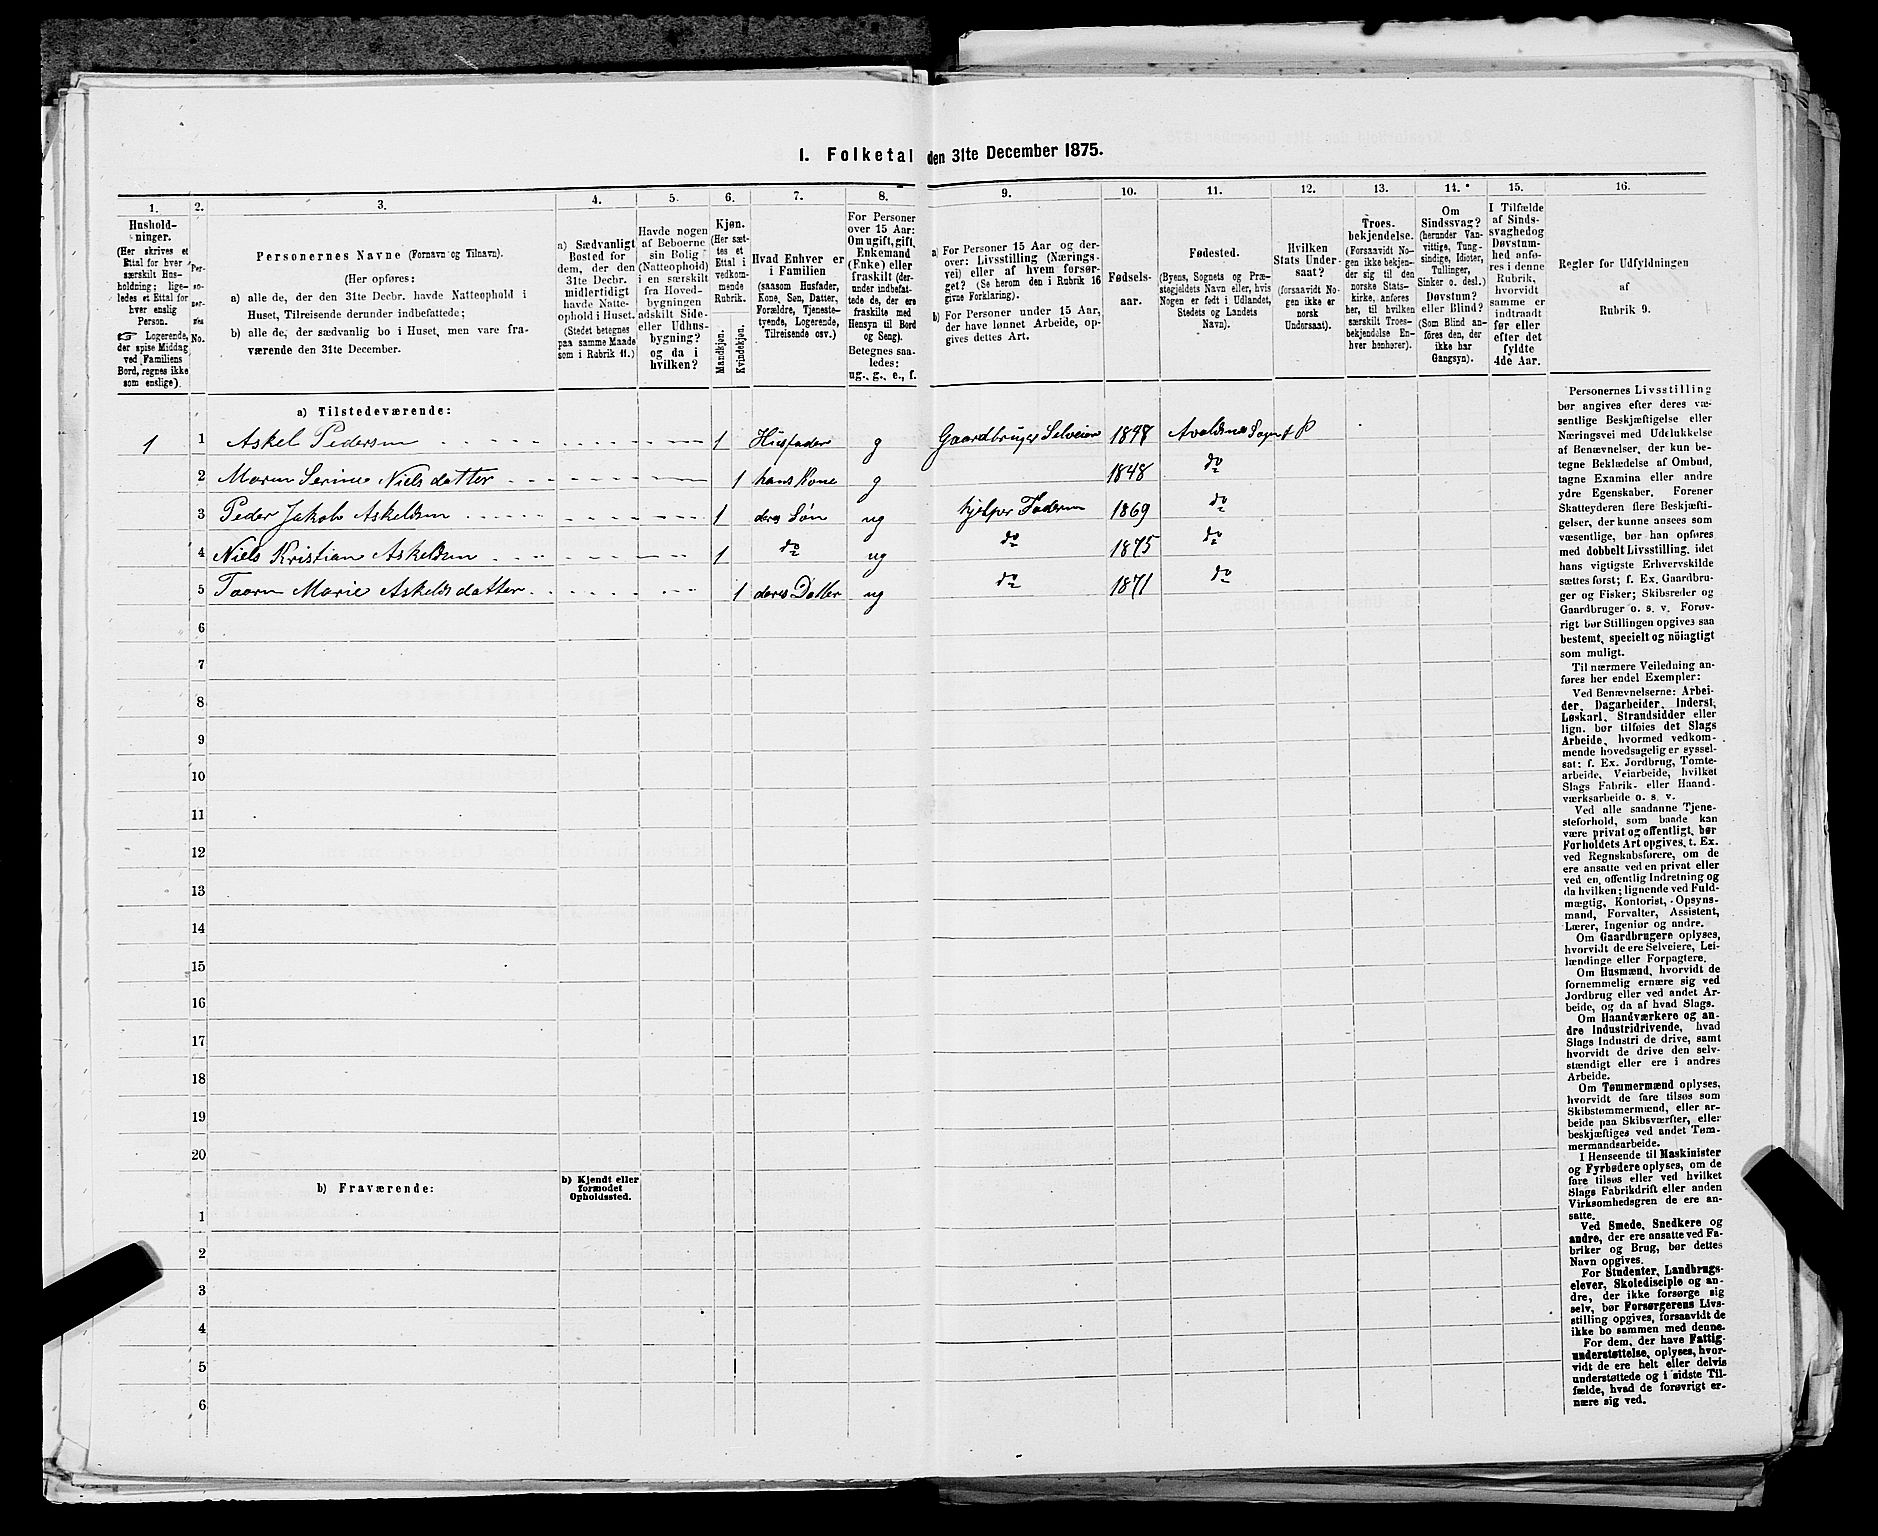 I. Folketal den 31te December 1875.
1. 2. 3. 4. 5. 6. 7. 8. 9. 10. 11. 12. 13. 14. 15. 16.
Hushold-
ninger.
(Her skrives et
Ettal for hver
særskilt Hus-
holdning; lige-
ledes et Ettal for
hver enslig
Person.
☞ Logerende,
der spise Middag
ved Familiens
Bord, regnes ikke
som enslige).
Per-
so-
ner-
nes
No.
Personernes Navne (Fornavn og Tilnavn).
(Her opføres:
a) alle de, der den 31te Decbr. havde Natteophold i
Huset, Tilreisende derunder indbefattede;
b) alle de, der sædvanlig bo i Huset, men vare fra-
værende den 31te December.
a) Sædvanligt
Bosted for
dem, der den
31te Decbr.
midlertidigt
havde Natte-
ophold i Huset.
(Stedet betegnes
paa samme Maade
som i Rubrik 11.)
Havde nogen
af Beboerne
sin Bolig
(Natteophold)
i en særskilt
fra Hoved-
bygningen
adskilt Side-
eller Udhus-
bygning?
og da i
hvilken?
Kjøn.
(Her sæt-
tes et
Ettal i
vedkom-
mende
Rubrik.
Mandkjøn.
Kvindekjøn.
Hvad Enhver er
i Familien
(saasom Husfader,
Kone, Søn, Datter,
Forældre, Tjeneste-
tyende, Logerende,
Tilreisende osv.)
For Personer
over 15 Aar:
Om ugift, gift,
Enkemand
(Enke) eller
fraskilt (der-
under indbefat-
tede de, der ere
fraskilte med
Hensyn til Bord
og Seng).
Betegnes saa-
ledes:
ug., g., e., f.
a) For Personer 15 Aar og der-
over: Livsstilling (Nærings-
vei) eller af hvem forsør-
get? (Se herom den i Rubrik 16
givne Forklaring).
b) For Personer under 15 Aar,
der have lønnet Arbeide, op-
gives dettes Art.
Fødsels-
aar.
Fødested.
(Byens, Sognets og Præ-
stegjeldets Navn eller, hvis
Nogen er født i Udlandet,
Stedets og Landets
Navn).
Hvilken
Stats Under-
saat?
(forsaavidt No-
gen ikke er
norsk
Undersaat).
Troes-
bekjendelse.
(Forsaavidt No-
gen ikke bekjen-
der sig til den
norske Stats-
kirke, anføres
her, til hvilken
særskilt Troes-
bekjendelse En-
hver henhører).
Om
Sindssvag?
(herunder Van-
vittige, Tung-
sindige, Idioter,
Tullinger,
Sinker o. desl.)
Døvstum?
eller Blind?
(Som Blind an-
føres den, der
ikke har
Gangsyn).
I Tilfælde
af Sinds-
svaghed og
Døvstum-
hed anfø-
res i denne
Rubrik,
hvorvidt
samme er
indtraadt
før eller
efter det
fyldte
4de Aar.
Regler for Udfyldningen
af
Rubrik 9.
a) Tilstedeværende:
1 1 Askel Pedersen 1 Husfader g Gaardbruger Selveier 1848 Avaldsnes Sogn & P
2 Maren Serine Nielsdatter 1 hans Kone g 1848 do
3 Peder Jakob Askeldsen 1 deres Søn ug hjelper Faderen 1869 do
4 Niels Kristian Askeldsen 1 do ug do 1875 do
5 Taarn Marie Askeldsdatter 1 deres Datter ug do 1871 do
6
7
8
9
10
11
12
13
14
15
16
17
18
19
20
b) Fraværende:
b) Kjendt eller
formodet
Opholdssted.
1
2
3
4
5
6
Personernes Livsstilling
bør angives efter deres væ-
sentlige Beskjæftigelse eller
Næringsvei med Udelukkelse
af Benævnelser, der kun be-
tegne Beklædelse af Ombud,
tagne Examina eller andre
ydre Egenskaber. Forener
Skatteyderen flere Beskjæfti-
gelser, der kunne ansees som
væsentlige, bør han opføres
med dobbelt Livsstilling, idet
hans vigtigste Erhvervskilde
sættes først; f. Ex. Gaardbru-
ger og Fisker; Skibsreder og
Gaardbruger o. s. v. Forøv-
rigt bør Stillingen opgives saa
bestemt, specielt og nöiagtigt
som muligt.
Til nærmere Veiledning an-
føres her endel Exempler:
Ved Benævnelserne: Arbei-
der, Dagarbeider, Inderst,
Løskarl, Strandsidder eller
lign. bør tilføies det Slags
Arbeide, hvormed vedkom-
mende hovedsagelig er syssel-
sat; f. Ex. Jordbrug, Tomte-
arbeide, Veiarbeide, hvilket
Slags Fabrik- eller Haand-
værksarbeide o. s. v.
Ved alle saadanne Tjene-
steforhold, som baade kan
være privat og offentligt, bør
Forholdets Art opgives, f. Ex.
ved Regnskabsførere, om de
ere ansatte ved en privat eller
ved en offentlig Indretning og
da hvilken; lignende ved Fuld-
mægtig, Kontorist, Opsyns-
mand, Forvalter, Assistent,
Lærer, Ingeniør og andre.
Om Gaardbrugere oplyses,
hvorvidt de ere Selveiere, Lei-
lændinge eller Forpagtere.
Om Husmænd, hvorvidt de
fornemmelig ernære sig ved
Jordbrug eller ved andet Ar-
beide, og da af hvad Slags.
Om Haandværkere og an-
dre Industridrivende, hvad
Slags Industri de drive, samt
hvorvidt de drive den selv-
stændigt eller ere i andres
Arbeide.
Om Tømmermænd oplyses,
hvorvidt de fare tilsøs som
Skibstømmermænd, eller ar-
beide paa Skibsværfter, eller
beskjæftiges ved andet Tøm-
mermandsarbeide.
I Henseende til Maskinister
og Fyrbødere oplyses, om de
fare tilsøs eller ved hvilket
Slags Fabrikdrift eller anden
Virksomhedsgren de ere an-
satte.
Ved Smede, Snedkere og
andre, der ere ansatte ved Fa-
briker og Brug, bør dettes
Navn opgives.
For Studenter, Landbrugs-
elever, Skoledisciple og an-
dre, der ikke forsørge sig
selv, bør Forsørgerens Livs-
stilling opgives, forsaavidt de
ikke bo sammen med denne.
For dem, der have Fattig-
understøttelse, oplyses, hvor-
vidt de ere helt eller delvis
understøttede og i sidste Til-
fælde, hvad de forøvrigt er-
nære sig ved.